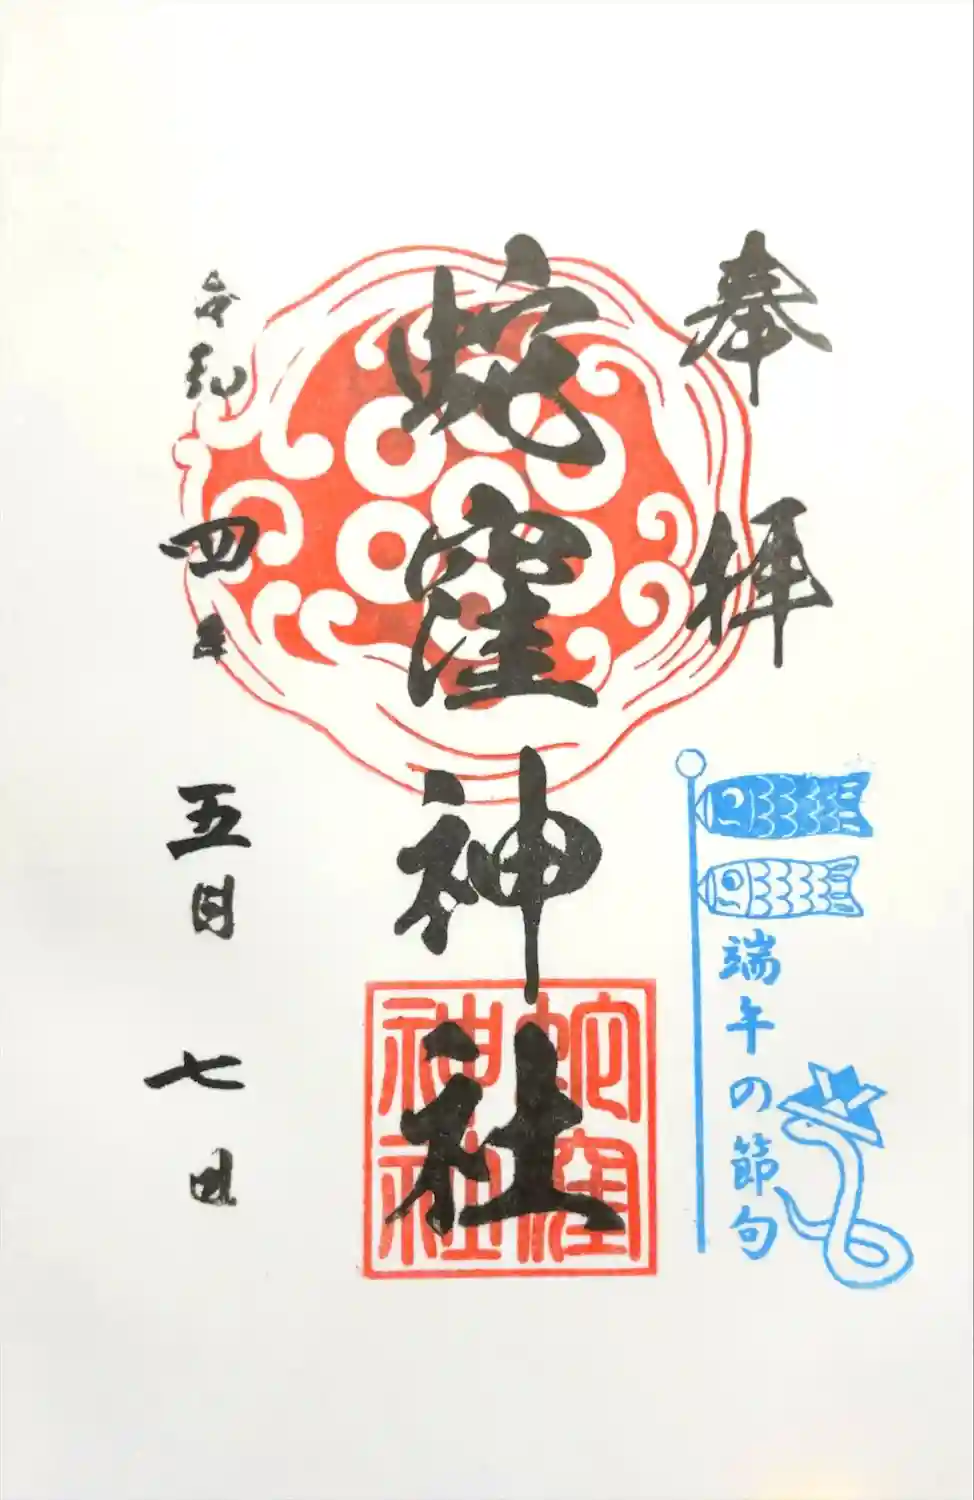 奉拝
端午の節句
蛇窪神社
蛇窪神社
令和四年五月七日